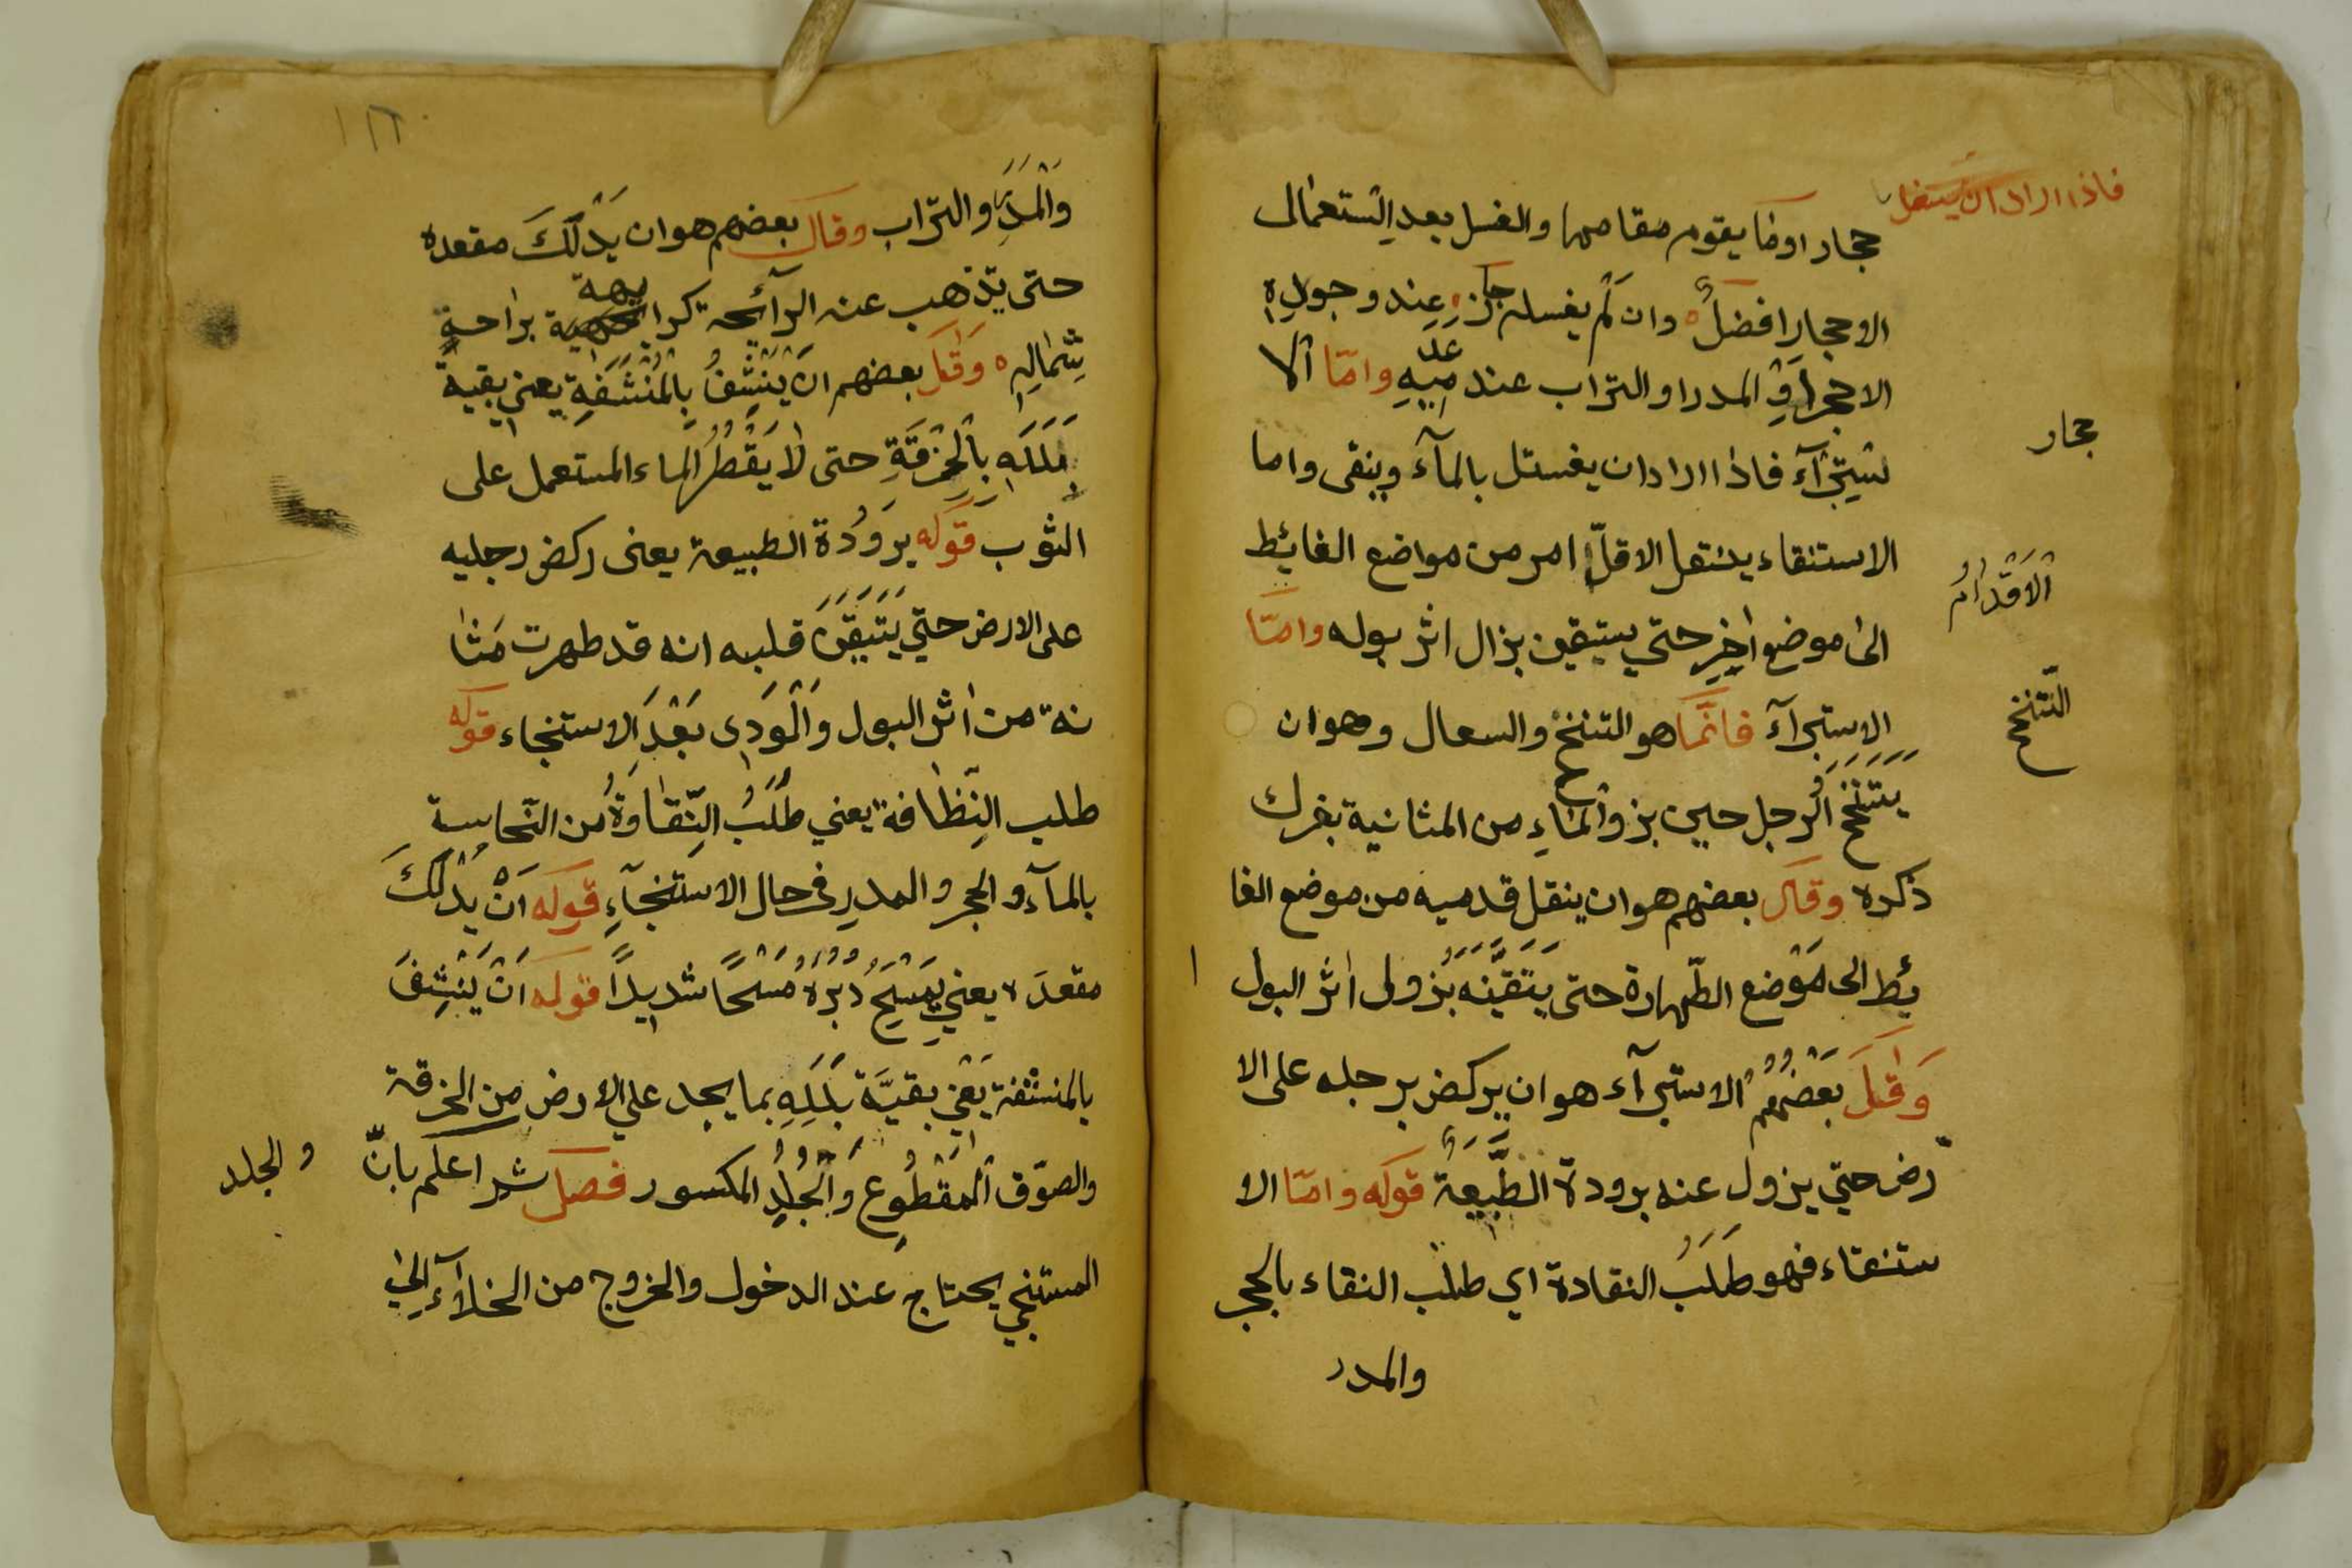 فاذا اراد ان يستغل
حجار او ما يقوم مقامها والغسل بعد استعمال
الاحجار افضل وان لم يغسله جاز عند وجوده
الاحجار او المدر او التراب عند عدميه واما الا
حجار
ستبرآء فاذا اراد ان يغستل بالمآء وينقى واما
الاستنقاء ينتقل الاقدام من مواضع الغائط
الاقدام
الى موضع اخر حتي يستيقين بزال اثر بوله وامّا
الاستبرآء فانّما هو التنحنح والسعال وهو ان
التنحنح
يتنحنح الرجل حين بزوالماء من المثانية بفرك
ذكره وقال بعضهم هو ان ينقل قدميه من موضع الغا
ئط الى موضع الطّهارة حتى يتقيّنه بزولى اثر البول
وقيل بعضهم الاستبرآء هو ان يركض برجله على الا
رض حتي يزول عنه برودة الطّبيعة قوله وامّا الا
ستنقاء فهو طلب النقادة اي طلب النقاء بالحجر
والمدر
١٢٦
والمدر والترّاب وقال بعضهم هو ان يدلك مقعده
حتى يذهب عنه الرآئحة كرايهة براحة
شماله وقيل بعضهم ان ينشف بالمنشفة يعني بقية
بلله بالخرقة حتى لا يقطر الماء المستعمل على
الثوب قوله برودة الطبيعة يعنى ركض رجليه
على الارض حتي يتيقن قلبه انه قد طهرت مثا
نة من اثر البول والودى بعد الاستنجاء قوله
طلب النّظافة يعني طلب النّقاوة من النّجاسة
بالمآء والحجر والمدر فى حال الاستنجآء قوله ان يدلك
مقعده يعني يمسح دبره مسحًا شديدًا قوله ان ينشف
بالمنشفة يعني بقيّة بلله بما يجد علي الارض من الخرقة
والصوّف المقطوع والجلد المكسور فصل ثم اعلم بانّ
والجلد
المستنجي يحتاج عند الدخول والخروج من الخلآء الى